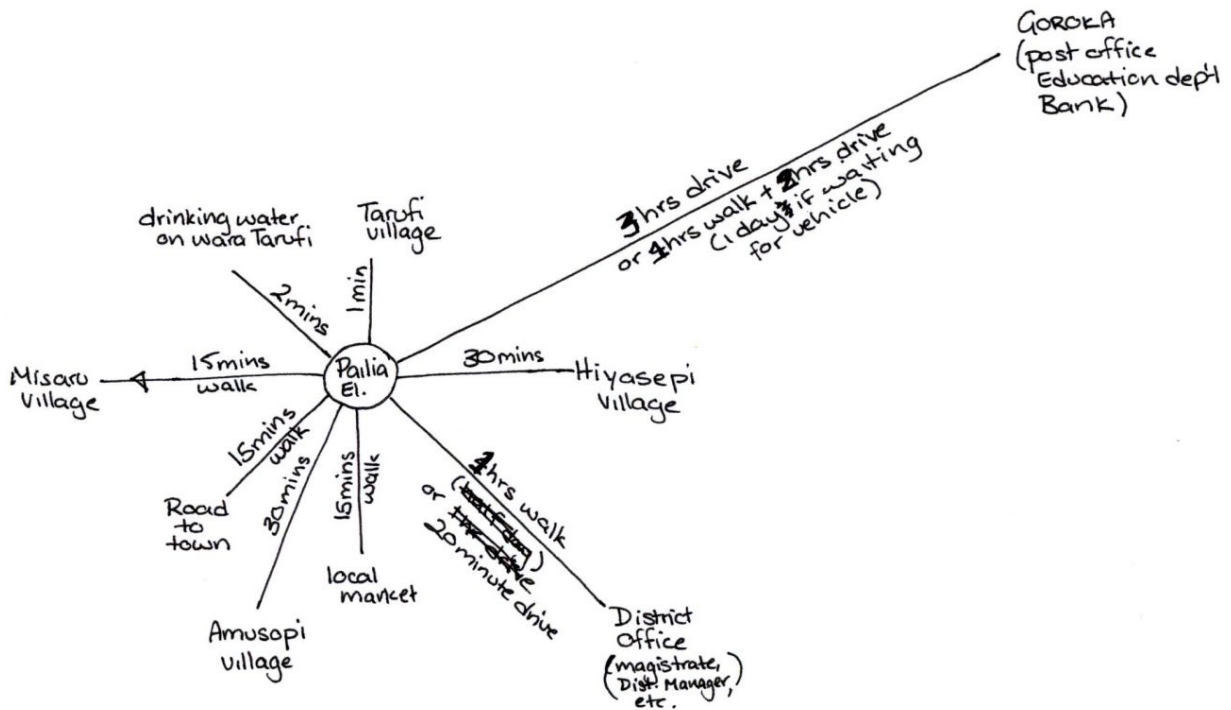 GOROKA
(post office
Education dep't
Bank)
3hrs drive
or 4hrs walk + 2hrs drive
(1 day if waiting
for vehicle)
drinking water
on wara Tarufi
2mins
Tarufi
village
1min
Misaru
village
15mins
walk
Pailia
El.
30mins
Hiyasepi
village
15mins
walk
Road
to
town
30mins
Amusopi
village
15mins
walk
local
market
hrs walk
or
20 minute drive
District
Office
(magistrate,
Dist. Manager,
etc.)